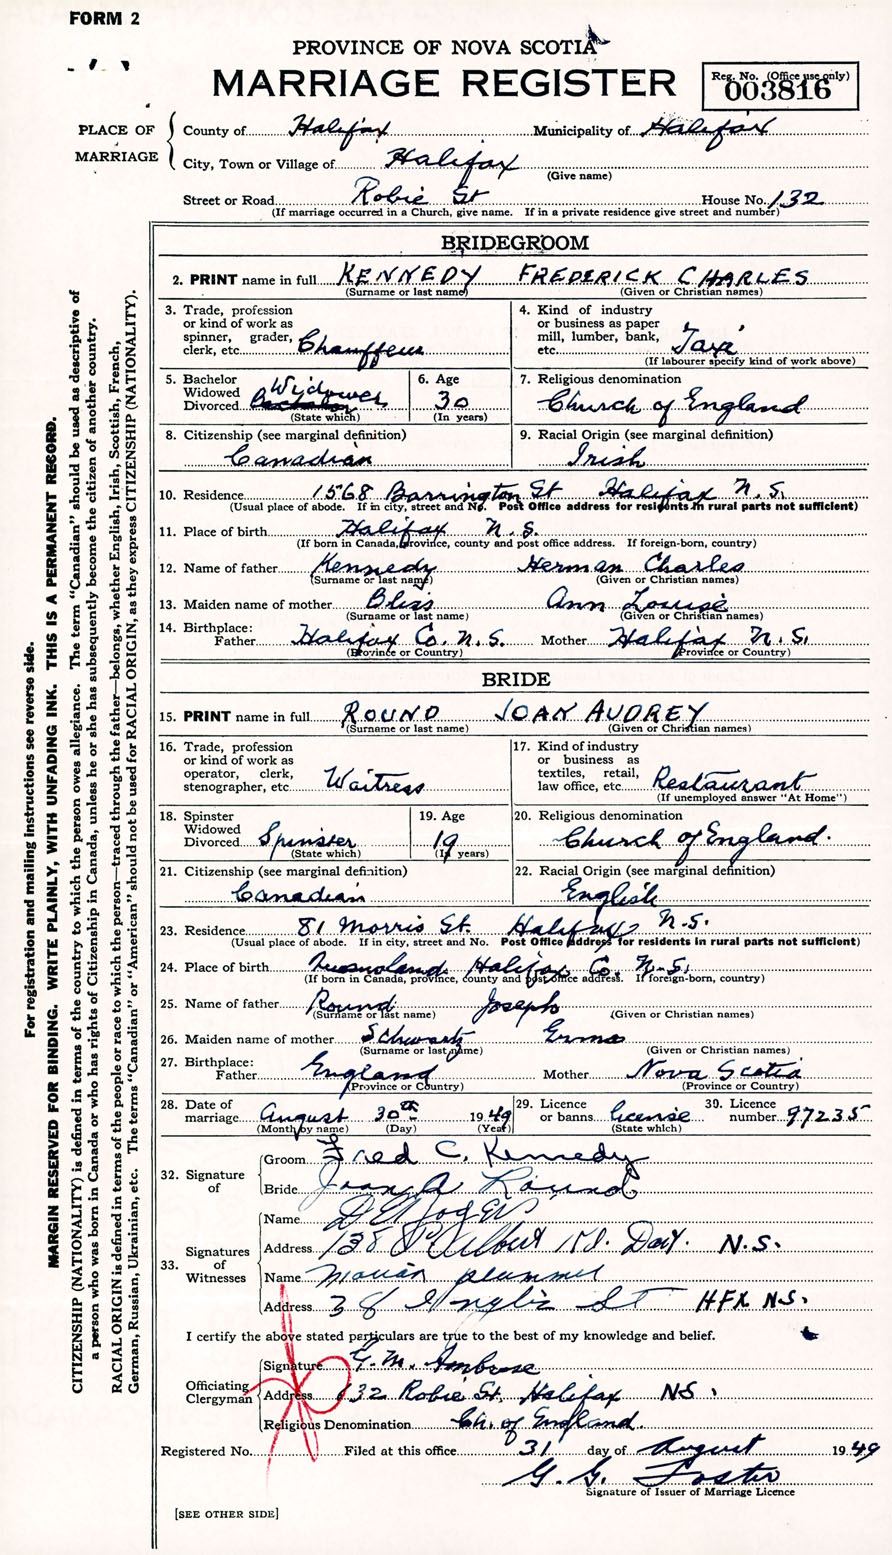 FORM 2
PROVINCE OF NOVA SCOTIA
MARRIAGE REGISTER
Reg. No. (Office use only)
003816
PLACE OF MARRIAGE
County of Halifax Municipality of Halifax
City, Town or Village of Halifax
(Give name)
Street or Road Robie St House No. 132
(If marriage occurred in a Church, give name. If in a private residence give street and number)
BRIDEGROOM
2. PRINT name in full KENNEDY FREDERICK CHARLES
(Surname or last name) (Given or Christian names)
3. Trade, profession or kind of work as spinner, grader, clerk, etc. Chauffeur
4. Kind of industry or business as paper mill, lumber, bank, etc. Taxi
(If labourer specify kind of work above)
5. Bachelor Widowed Divorced Widower
(State which)
6. Age 30
(In years)
7. Religious denomination
Church of England
8. Citizenship (see marginal definition)
Canadian
9. Racial Origin (see marginal definition)
Irish
10. Residence 1568 Barrington St Halifax N.S.
(Usual place of abode. If in city, street and No. Post Office address for residents in rural parts not sufficient)
11. Place of birth Halifax N.S.
(If born in Canada, province, county and post office address. If foreign-born, country)
12. Name of father Kennedy Herman Charles
(Surname or last name) (Given or Christian names)
13. Maiden name of mother Bliss Ann Louise
(Surname or last name) (Given or Christian names)
14. Birthplace:
Father Halifax Co. N.S. Mother Halifax N.S.
(Province or Country) (Province or Country)
BRIDE
15. PRINT name in full ROUND JOAN AUDREY
(Surname or last name) (Given or Christian names)
16. Trade, profession or kind of work as operator, clerk, stenographer, etc Waitress
17. Kind of industry or business as textiles, retail, law office, etc. Restaurant
(If unemployed answer "At Home")
18. Spinster Widowed Divorced Spinster
(State which)
19. Age 19
(In years)
20. Religious denomination
Church of England.
21. Citizenship (see marginal definition)
Canadian
22. Racial Origin (see marginal definition)
English
23. Residence 81 Morris St. Halifax N.S.
(Usual place of abode. If in city, street and No. Post Office address for residents in rural parts not sufficient)
24. Place of birth Halifax Co. N.S.
(If born in Canada, province, county and post office address. If foreign-born, country)
25. Name of father Round Joseph
(Surname or last name) (Given or Christian names)
26. Maiden name of mother Schwartz Erma
(Surname or last name) (Given or Christian names)
27. Birthplace:
Father England Mother Nova Scotia
(Province or Country) (Province or Country)
28. Date of marriage August 30th 1949
(Month by name) (Day) (Year)
29. Licence or banns license
(State which)
30. Licence number 97235
32. Signature of
Groom Fred C. Kennedy
Bride Joan A Round
33. Signatures of Witnesses
Name
Address 138 Albert Rd. Dart. N.S.
Name Marian Plummer
Address 38 Inglis St HFX N.S.
I certify the above stated particulars are true to the best of my knowledge and belief.
Officiating Clergyman
Signature G. M. Ambrose
Address 132 Robie St. Halifax NS.
Religious Denomination Ch. of England.
Registered No. Filed at this office 31 day of August 1949
G. G. Foster
Signature of Issuer of Marriage Licence
[SEE OTHER SIDE]
For registration and mailing instructions see reverse side.
MARGIN RESERVED FOR BINDING. WRITE PLAINLY, WITH UNFADING INK. THIS IS A PERMANENT RECORD.
CITIZENSHIP (NATIONALITY) is defined in terms of the country to which the person owes allegiance. The term "Canadian" should be used as descriptive of
a person who was born in Canada or who has rights of Citizenship in Canada, unless he or she has subsequently become the citizen of another country.
RACIAL ORIGIN is defined in terms of the people or race to which the person—traced through the father—belongs, whether English, Irish, Scottish, French,
German, Russian, Ukrainian, etc. The terms "Canadian" or "American" should not be used for RACIAL ORIGIN, as they express CITIZENSHIP (NATIONALITY).